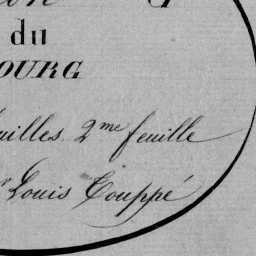 du
OURG
uilles 2me feuille
Louis Couppé